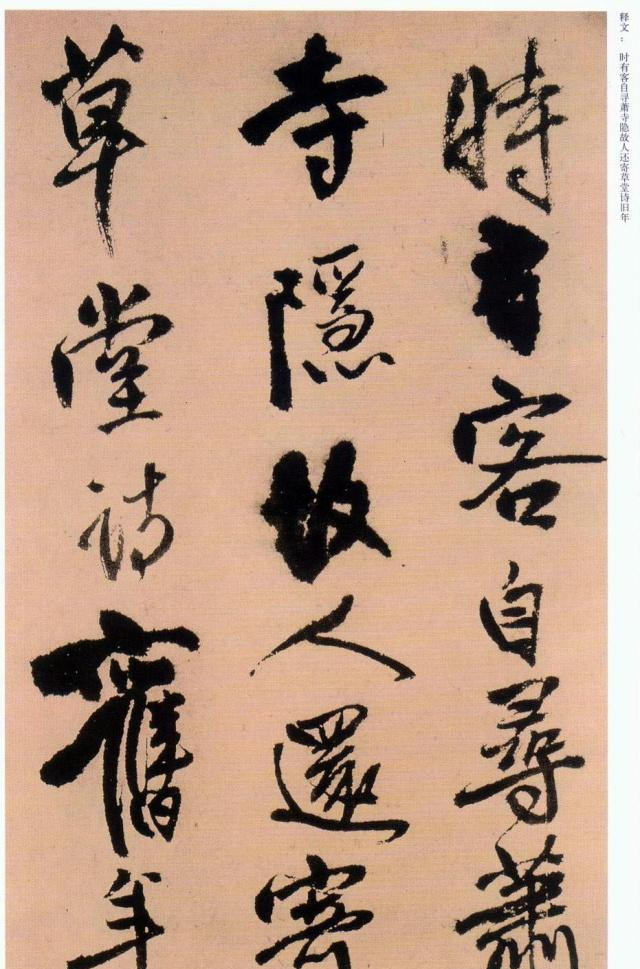 时有客自寻萧寺隐故人还寄草堂诗旧年
時有客自尋蕭
寺隱故人還寄
草堂詩舊年